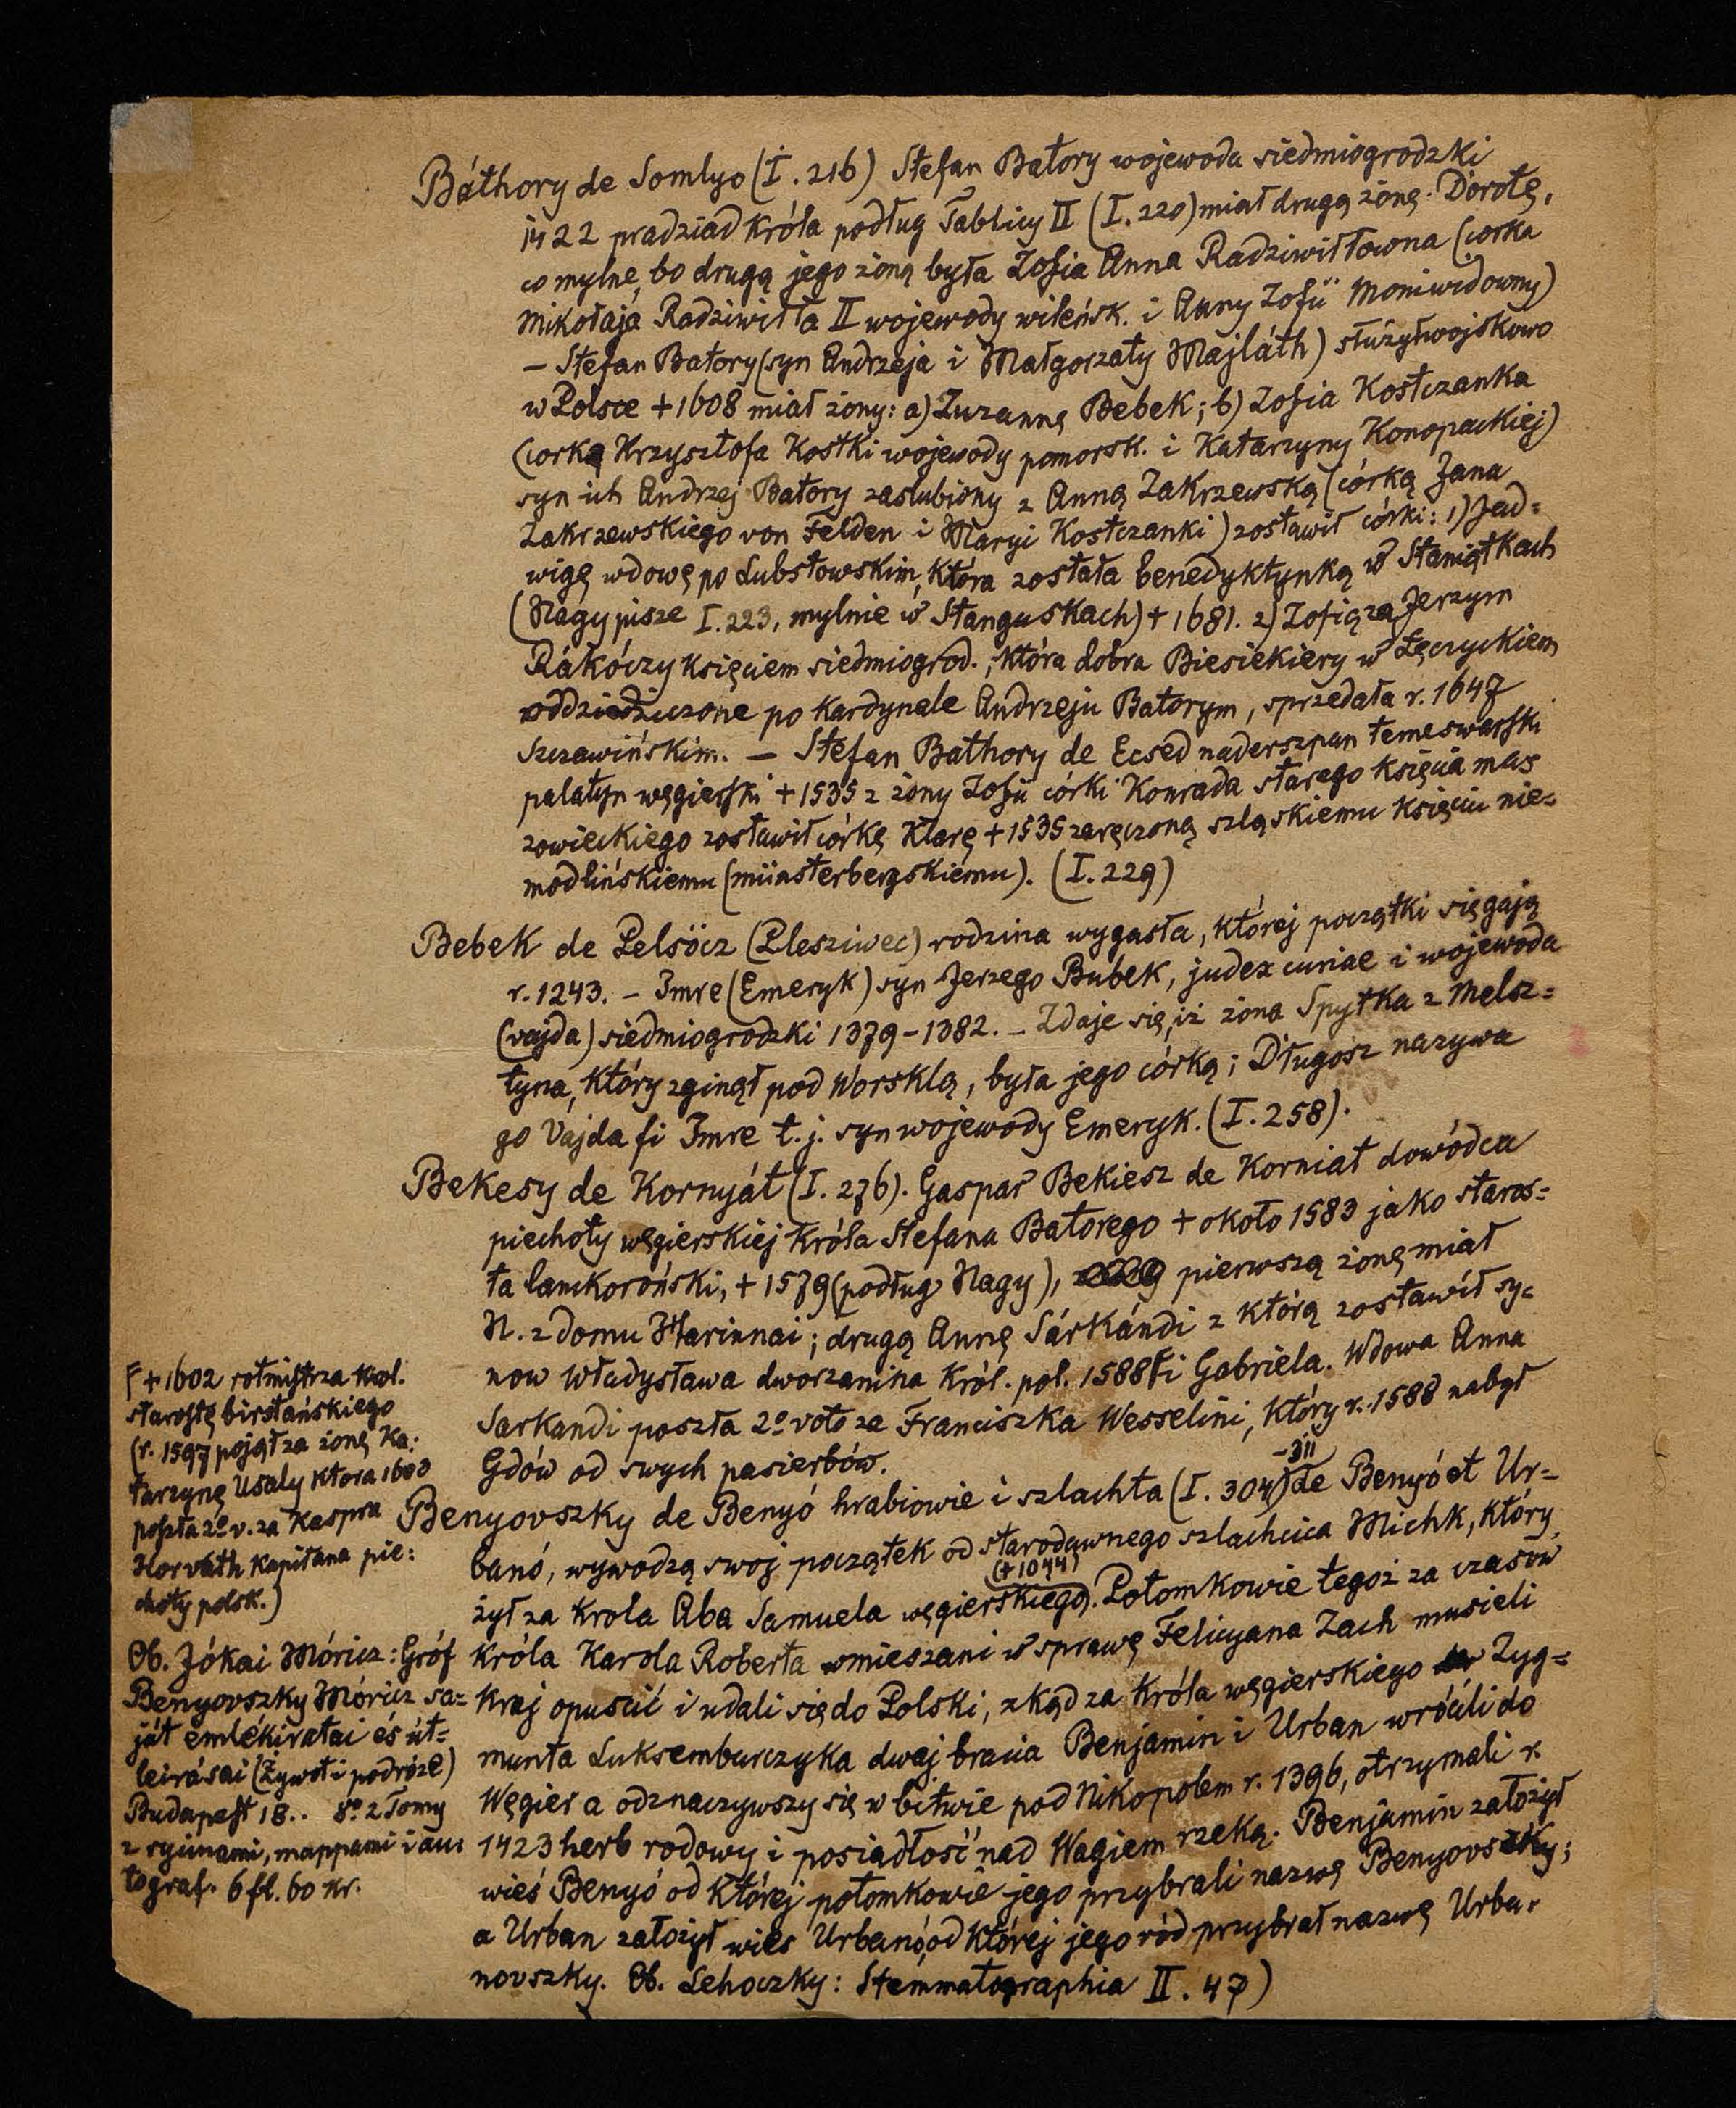 Báthory de Somlyo (I. 216) Stefan Batory wojewoda siedmiogrodzki
1422 pradziad króla podług Tablicy II (I. 220) miał drugą żonę Dorotę,
co mylne, bo drugą jego żoną była Zofia Anna Radziwiłłowna (corka
Mikołaja Radziwiłła II wojewody wileńsk. i Anny Zofii Moniwidowny)
— Stefan Batory (syn Andrzeja i Małgorzaty Majláth) służył wojskowo
w Polsce + 1608 miał żony: a) Zuzannę Bebek; b) Zofia Kostczanka
(corką Krzysztofa Kostki wojewody pomorsk. i Katarzyny Konopackiej)
syn ich Andrzej Batory zaslubiony z Anną Zakrzewską (córką Jana
Zakrzewskiego von Felden i Maryi Kostczanki) zostawił córki: 1) Jad=
wigę wdowę po Lubstowskim, która została benedyktynką w Staniątkach
(Nagy pisze I. 223, mylnie w Stanguskach) + 1681. 2) Zofią za Jerzym
Rákóczy księciem siedmiogrod., która dobra Biesiekiery w Łęczyckiem
oddziedziczone po Kardynale Andrzeju Batorym, sprzedała r. 1647
Szczawińskim. — Stefan Bathory de Ecsed naderszpan temeswarski
palatyn węgierski + 1535 z żony Zofii córki Konrada starego księcia ma=
zowieckiego zostawił córkę Klarę + 1535 zaręczoną szląskiemu księciu nie=
modlińskiemu (münsterbergskiemu). (I. 229)
Bebek de Pelsöcz (Plesziwec) rodzina wygasła, której początki sięgają
r. 1243. — Imre (Emeryk) syn Jerzego Bubek, judex curiae i wojewoda
(vajda) siedmiogrodzki 1379-1382. — Zdaje się, iż żona Spytka z Melsz=
tyna, który zginął pod Worsklą, była jego córką; Długosz nazywa
go Vajda fi Imre t. j. syn wojewody Emeryk. (I. 258).
Bekesy de Kornyát (I. 276). Gaspar Bekiesz de Korniat dowódca
piechoty węgierskiej króla Stefana Batorego + około 1583 jako staros=
ta lanckoroński, + 1579 (podług Nagy), pierwszą żonę miał
N. z domu Harinnai; drugą Annę Sárkándi z którą zostawił sy=
now Władysława dworzanina król. pol. 1588 Γ i Gabriela. Wdowa Anna
Sarkandi poszła 2º voto za Franciszka Wesselini, który r. 1588 nabył
Gdów od swych pasierbów.
Γ + 1602 rotmistrza krol.
starostę birstańskiego
(r. 1597 pojął za żonę Ka=
tarzynę Usaly ktora 1603
poszła 2º v. za Kaspra
Horváth kapitana pie=
choty polsk.)
Benyovszky de Benyó hrabiowie i szlachta (I. 304-311) de Benyó et Ur=
banó, wywodzą swoj początek od starodawnego szlachcica Michk, który
żył za krola Aba Samuela węgierskiego (+ 1044). Potomkowie tegoż za czasów
króla Karola Roberta wmieszani w sprawę Felicyana Zach musieli
kraj opuscić i udali się do Polski, zkąd za króla węgierskiego Zyg=
munta Luksemburczyka dwaj bracia Benjamin i Urban wrócili do
Węgier a odznaczywszy się w bitwie pod Nikopolem r. 1396, otrzymali r.
1423 herb rodowy i posiadłość nad Wagiem rzeką. Benjamin założył
wieś Benyó od której potomkowie jego przybrali nazwę Benyovszky;
a Urban założył wies Urbanó, od której jego ród przybrał nazwę Urba=
novszky. Ob. Lehoczky: Stemmatographia II. 47)
Ob. Jókai Móricz: Gróf
Benyovszky Móricz sa=
ját emlékiratai és út=
leirásai (Żywot i podróże)
Budapest 18.. 8º 2 Tomy
z rycinami, mappami i au=
tograf. 6 fl. 60 kr.